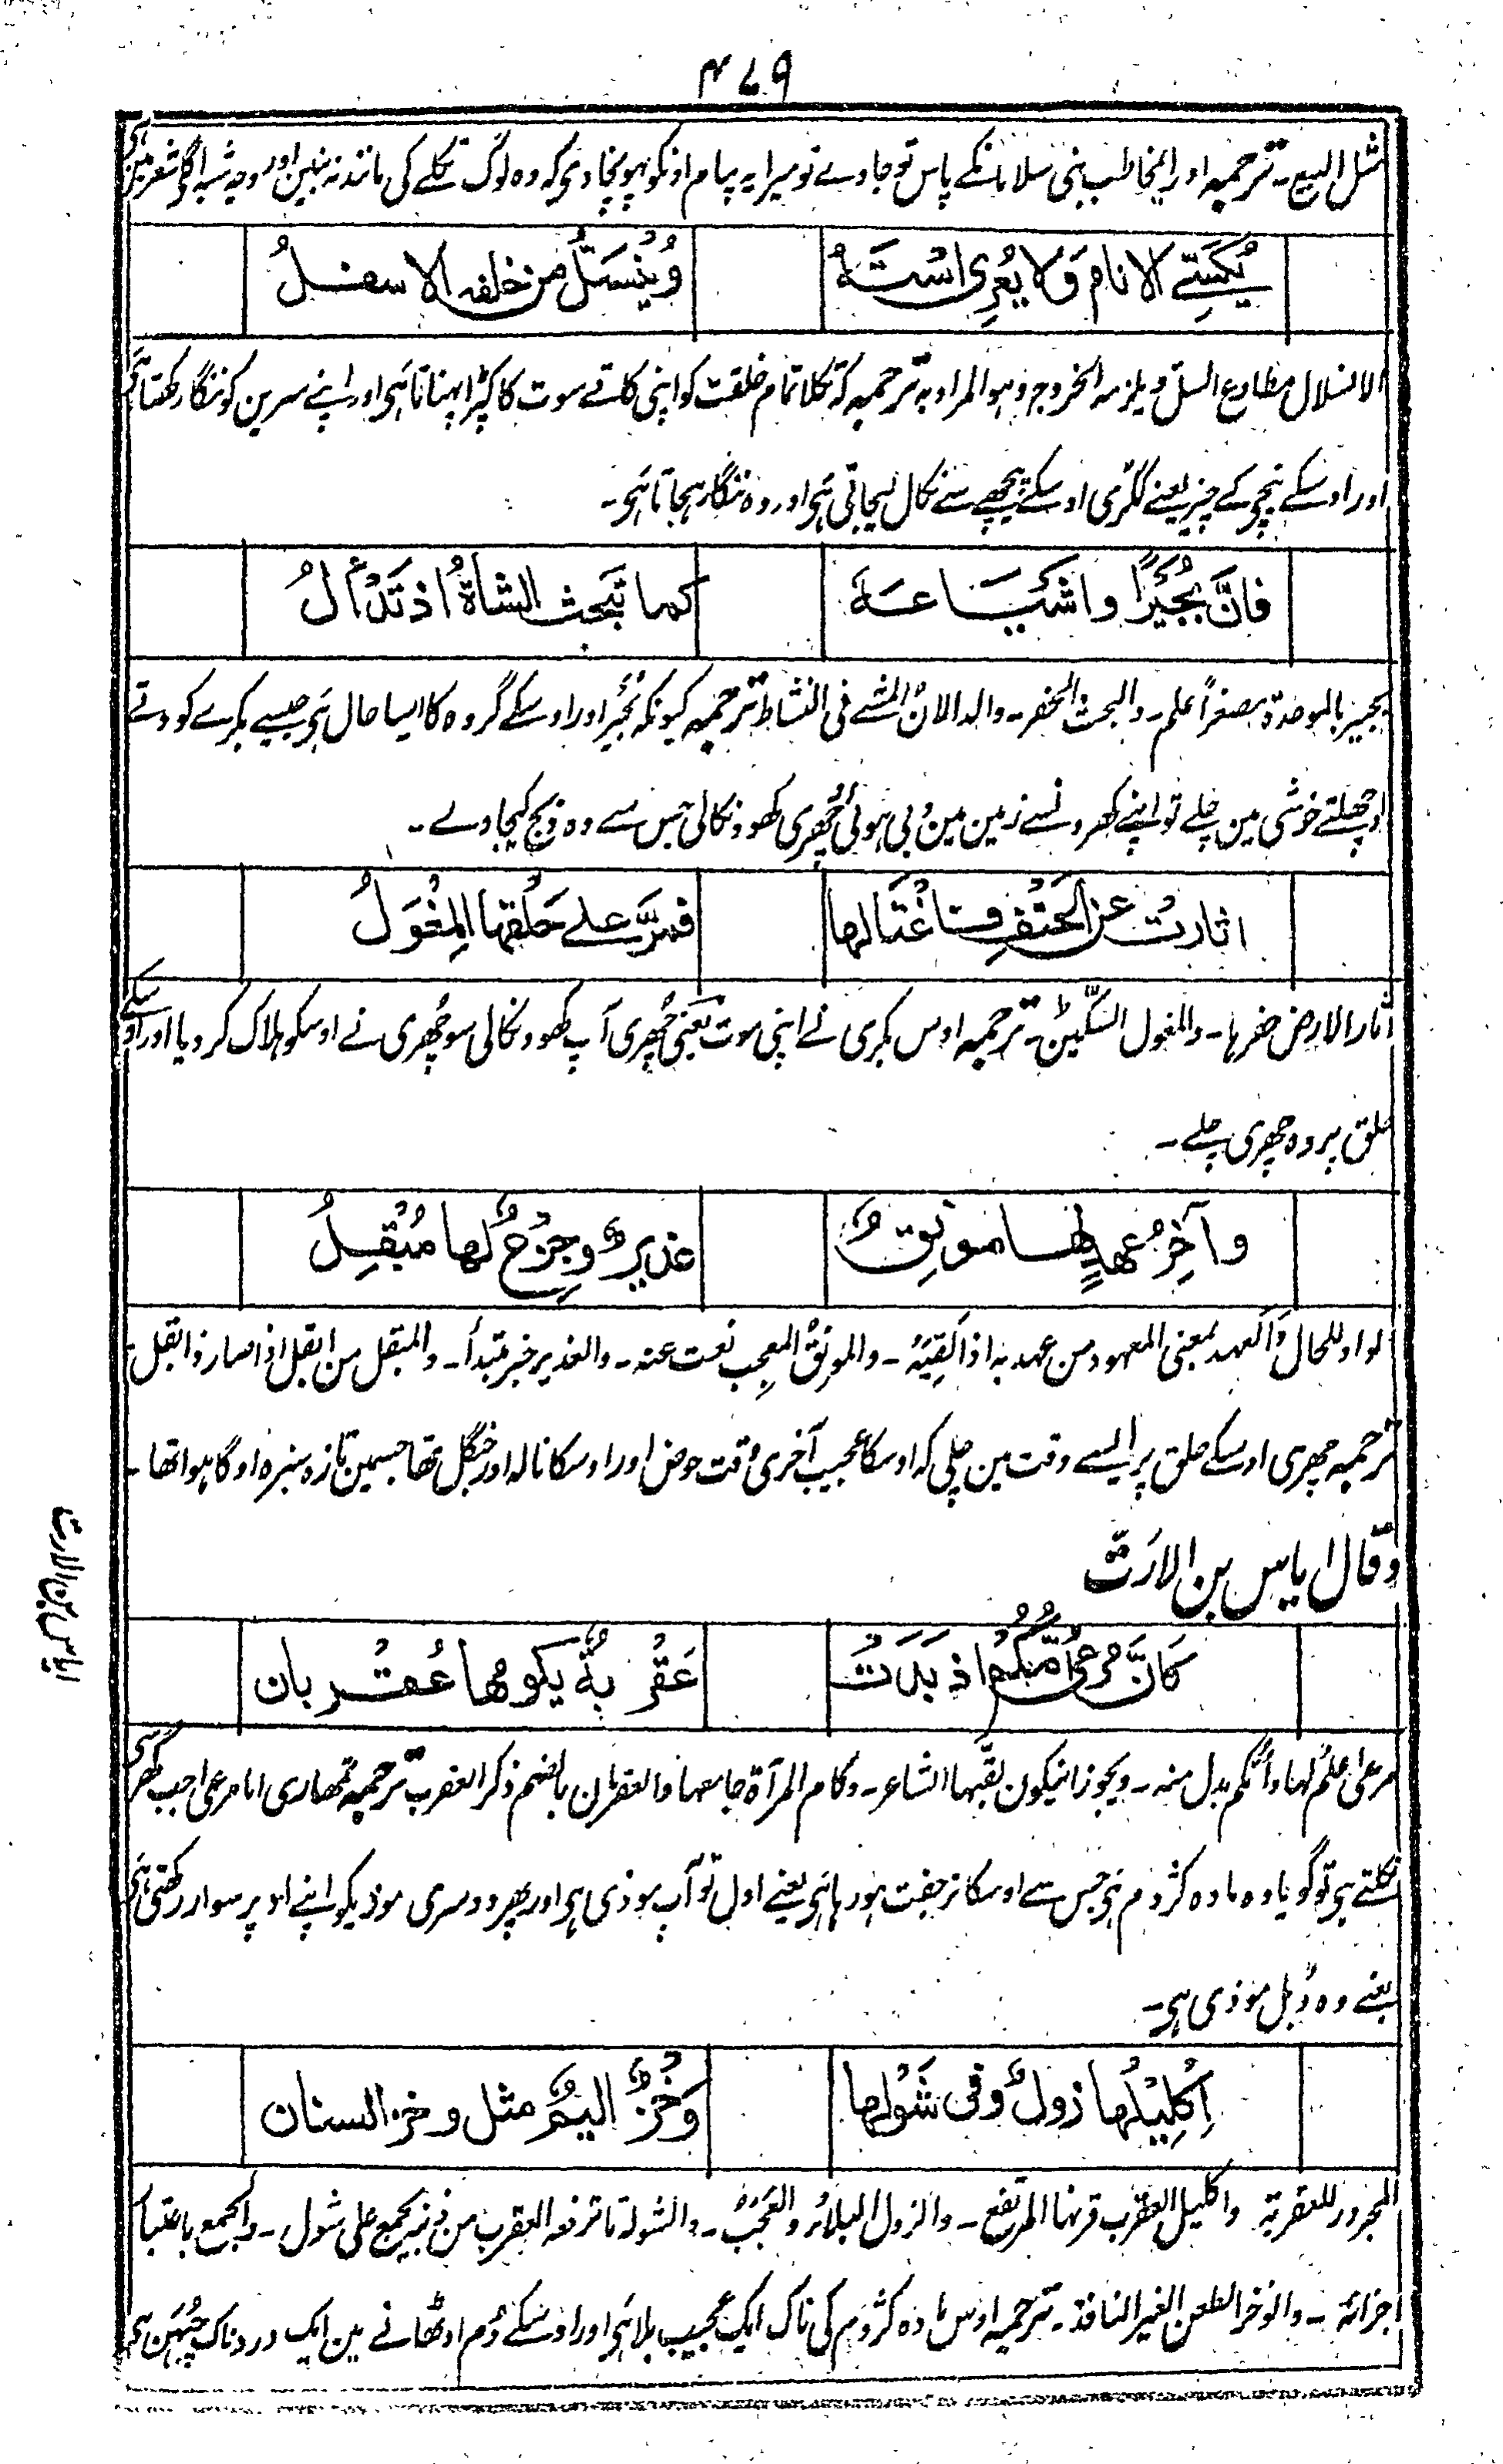 ۴۷۹
مثل البیع۔ ترجمہ اور ایمخاطب بنی سلامانکے پاس تو جاوے تو میرا یہ پیام اونکو پہونچادی کہ وہ لوگ تکلے کی مانند نہ بنین اور وجہ شبہ اگلی شعر مین ہی
یُکَسِّے الانام وَلا یُعرِی اسْتَہٗ وَیُنْسَلُّ من خلفہ الاسفلُ
الانسلال مطاوع السل ویلزمہ الخروج وہو المراد بہ ترجمہ کہ تکلا تمام خلقت کو اپنی کاتے سوت کا کپڑا پہناتا ہَی اور اپنے سرین کو ننگا رکھتا ہَی
اور اوسکے نیچی کے چیز یعنے لکڑی اوسکے پیچھے سے نکال لیجاتی ہَی اور وہ ننگا رہجاتا ہَی۔
فاِنَّ بُجَیْرًا واشیَاعَہٗ کما تَبحث الشاۃُ اذ تَدْأَلُ
بجیر بالموحدۃ مصغراً علم۔ والبحث الحفر۔ والدالان المشے فی النشاط ترجمہ کیونکہ بُجَیر اور اوسکے گروہ کا ایسا حال ہَی جیسے بکرے کودتے
اوچھلتے خوشی مین چلے تو اپنے کھرونسے زمین مین دبی ہوئی چُھری کھود نکالی جس سے وہ ذبح کیجاوے۔
اثارتْ عن الحَتْفِ فاغْتَالہا فمرَّ علے حَلْقہا المِغْوَلُ
اثار الارض حفرہا۔ والمغول السکّین۔ ترجمہ اوس بکری نے اپنی موت یعنی چُھری آپ کھود نکالی سو چُھری نے اوسکو ہلاک کر دیا اور اوسکے
حلق پر وہ چھری چلے۔
وآخِرُ عہدٍ لہا مونِقٌ غدیرٌ وجِزْعٌ لہا مُبْقِلُ
الواو للحال والعہد بمعنی المعہود من عہد بہ اذا لَقِیَہٗ۔ والمونِق المعجِب نعت عنہ۔ والغدیر خبر مبتدأ۔ والمبقل من ابقل اذا صار ذا بقل
ترجمہ چھری اوسکے حلق پر ایسے وقت مین چلی کہ اوسکا عجیب آخری وقت حوض اور اوسکا نالہ اور جنگل تھا جسمین تازہ سبزہ اوگا ہوا تھا۔
وقال ایاس بن الارَتّ
ایاس بن الارت
کَانَّ مرعیٰ اُمَّکُمْ اذ بَدَتْ عَقْرَبَۃٌ یکومہا عُقْرُبان
مرعی علم لہا وامُّکم بدل منہ۔ ویجوز انیکون لقّبہا الشاعر۔ وکام المرآۃ جامعہا والعقربان بالضم ذکر العقرب ترجمہ تمھاری اما مرعی جب گھر سی
نکلتے ہی تو گویا وہ مادہ کژدم ہَی جس سے اوسکا نر جفت ہورہا ہَی یعنے اول تو آپ موذی ہی اور پھر دوسری موذیکو اپنے اوپر سوار رکھتی ہَی
یعنے وہ ڈبل موذی ہی۔
اِکْلِیْلُہا زولٌ وفی شَوْلہا وَخْزٌ الیمٌ مثل وخز السنان
المجرور للعقربۃ واکلیل العقرب قرنہا المرتفع۔ والزول البلاء والعَجَبُ۔ والشولۃ ما ترفعہ العقرب من ذنبہ یجمع علی شول۔ والجمع باعتبار
اجزائہ۔ والوخز الطعن الغیر النافذ۔ ترجمہ اوس مادہ کژدم کی ناک ایک عجیب بلا ہَی اور اوسکے دُم اوٹھانے مین ایک دردناک چُبھن ہی